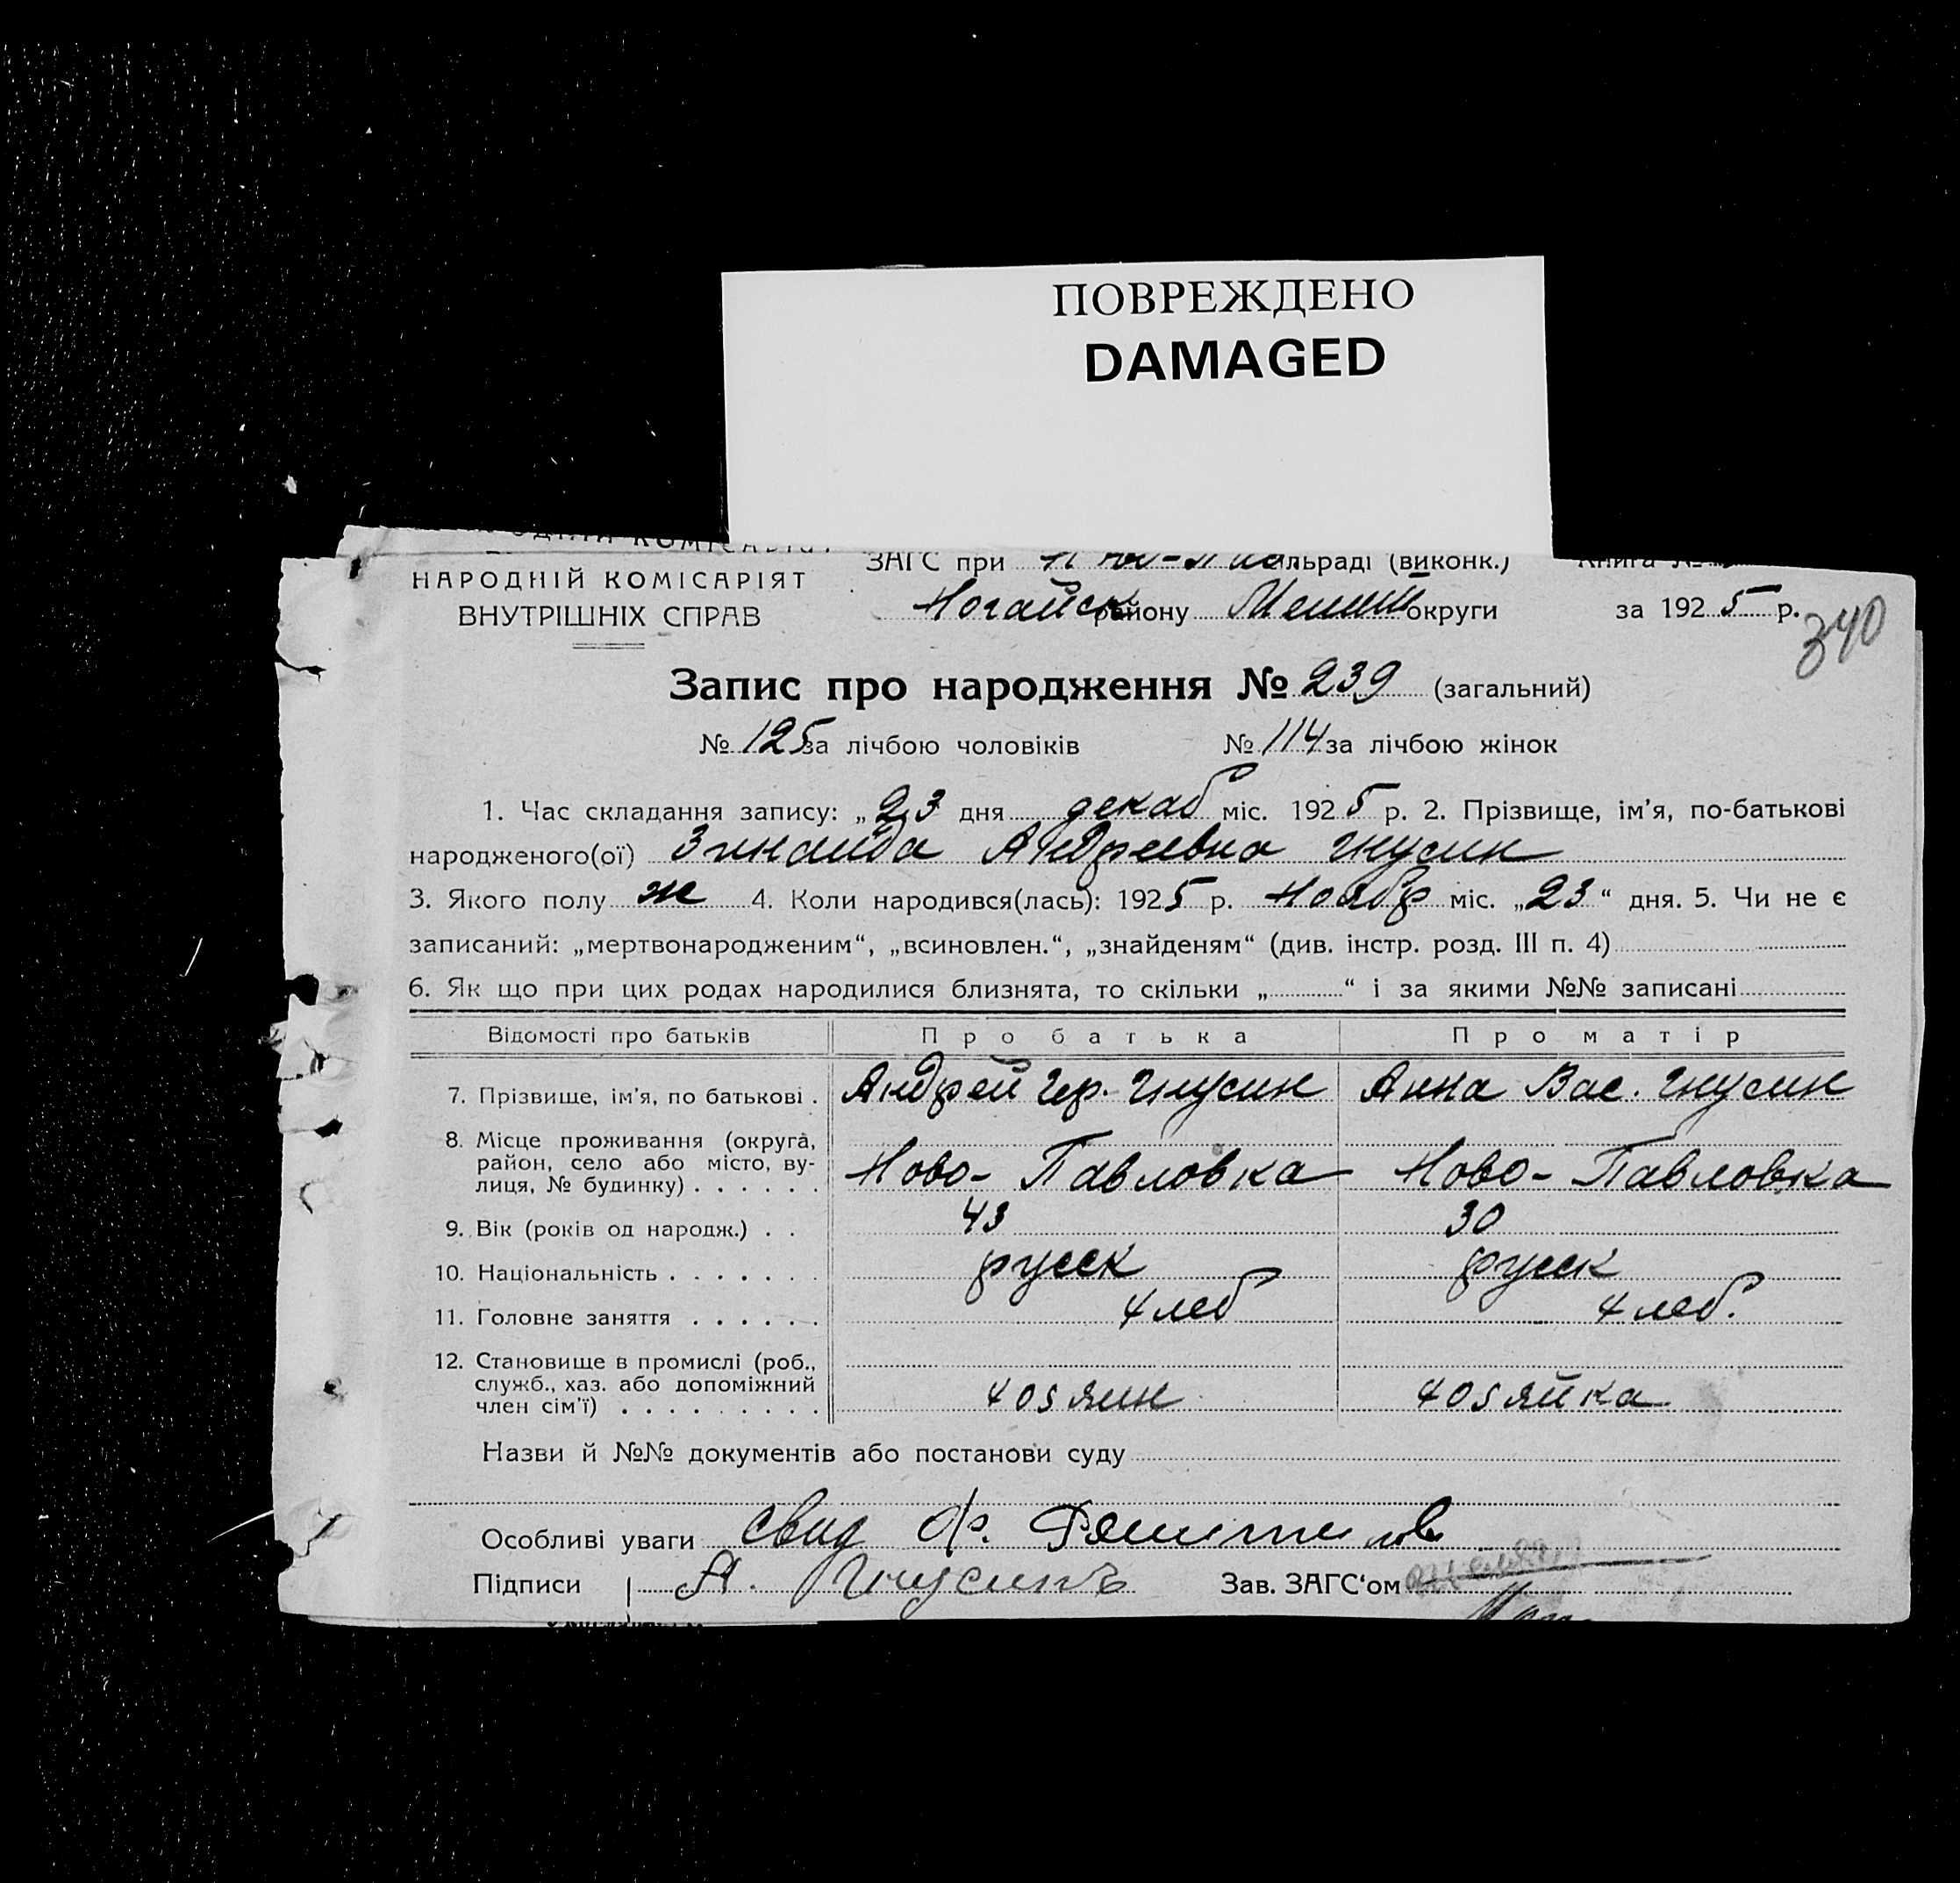 ПОВРЕЖДЕНО
DAMAGED
НАРОДНІЙ КОМІСАРІЯТ
ВНУТРІШНІХ СПРАВ
ЗАГС при сільраді (виконк.)
Ногайск району округи
Книга №
за 1925 р.
340
Запис про народження № 239 (загальний)
№ 125 за лічбою чоловіків № 114 за лічбою жінок
1. Час складання запису: „23 дня декаб міс. 1925 р. 2. Прізвище, ім’я, по-батькові
народженого(ої) Зинаида Андреевна Гнусин
3. Якого полу ж 4. Коли народився(лась): 1925 р. Ноябр міс. „23“ дня. 5. Чи не є
записаний: „мертвонародженим“, „всиновлен.“, „знайденям“ (див. інстр. розд. III п. 4)
6. Як що при цих родах народилися близнята, то скільки „ “ і за якими №№ записані
Відомості про батьків Про батька Про матір
7. Прізвище, ім’я, по батькові . Андрей Гр. Гнусин Анна Вас. Гнусин
8. Місце проживання (округа,
район, село або місто, ву-
лиця, № будинку) . . . . . . Ново-Павловка Ново-Павловка
9. Вік (років од народж.) . . 43 30
10. Національність . . . . . . . русск русск
11. Головне заняття . . . . . . хлеб хлеб.
12. Становище в промислі (роб.,
служб., хаз. або допоміжний
член сім’ї) . . . . . . . . . хозяин хозяйка
Назви й №№ документів або постанови суду
Особливі уваги свид Ф.
Підписи А. Гнусинъ Зав. ЗАГС‘ом